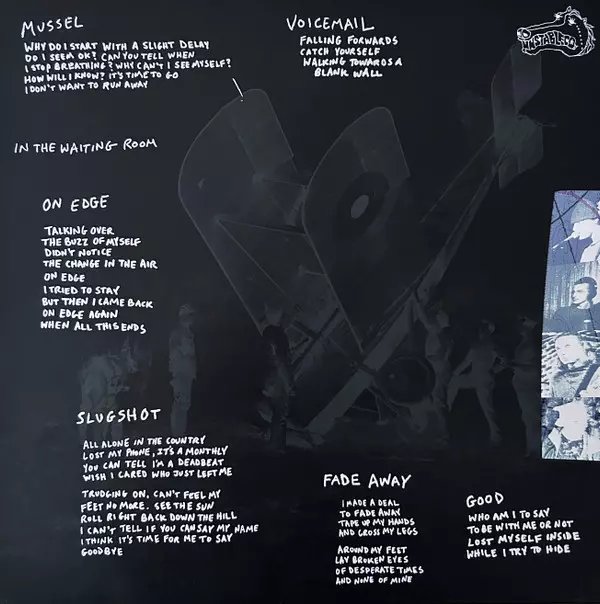 MUSSEL
WHY DO I START WITH A SLIGHT DELAY
DO I SEEM OK? CAN YOU TELL WHEN
I STOP BREATHING? WHY CAN'T I SEE MYSELF?
HOW WILL I KNOW? IT'S TIME TO GO
I DON'T WANT TO RUN AWAY
VOICEMAIL
FALLING FORWARDS
CATCH YOURSELF
WALKING TOWARDS A
BLANK WALL
UNSTABLECO.
IN THE WAITING ROOM
ON EDGE
TALKING OVER
THE BUZZ OF MYSELF
DIDN'T NOTICE
THE CHANGE IN THE AIR
ON EDGE
I TRIED TO STAY
BUT THEN I CAME BACK
ON EDGE AGAIN
WHEN ALL THIS ENDS
SLUGSHOT
ALL ALONE IN THE COUNTRY
LOST MY PHONE, IT'S A MONTHLY
YOU CAN TELL I'M A DEADBEAT
WISH I CARED WHO JUST LEFT ME
TRUDGING ON, CAN'T FEEL MY
FEET NO MORE. SEE THE SUN
ROLL RIGHT BACK DOWN THE HILL
I CAN'T TELL IF YOU CAN SAY MY NAME
I THINK IT'S TIME FOR ME TO SAY
GOODBYE
FADE AWAY
I MADE A DEAL
TO FADE AWAY
TAPE UP MY HANDS
AND CROSS MY LEGS
AROUND MY FEET
LAY BROKEN EYES
OF DESPERATE TIMES
AND NONE OF MINE
GOOD
WHO AM I TO SAY
TO BE WITH ME OR NOT
LOST MYSELF INSIDE
WHILE I TRY TO HIDE